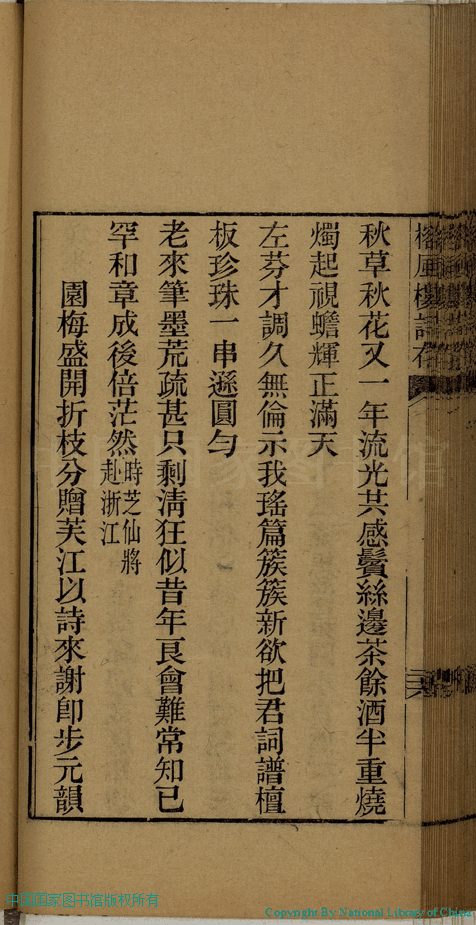 秋草秋花又一年流光共感鬢絲邊茶餘酒半重燒
燭起視蟾輝正滿天
左芬才調久無倫示我瑤篇簇簇新欲把君詞譜檀
板珍珠一串遜圓勻
老來筆墨荒疏甚只剩淸狂似昔年良會難常知已
罕和章成後倍茫然時芝仙將赴浙江
園梅盛開折枝分贈芙江以詩來謝卽步元韻
中国国家图书馆版权所有
Copyright By National Library of China